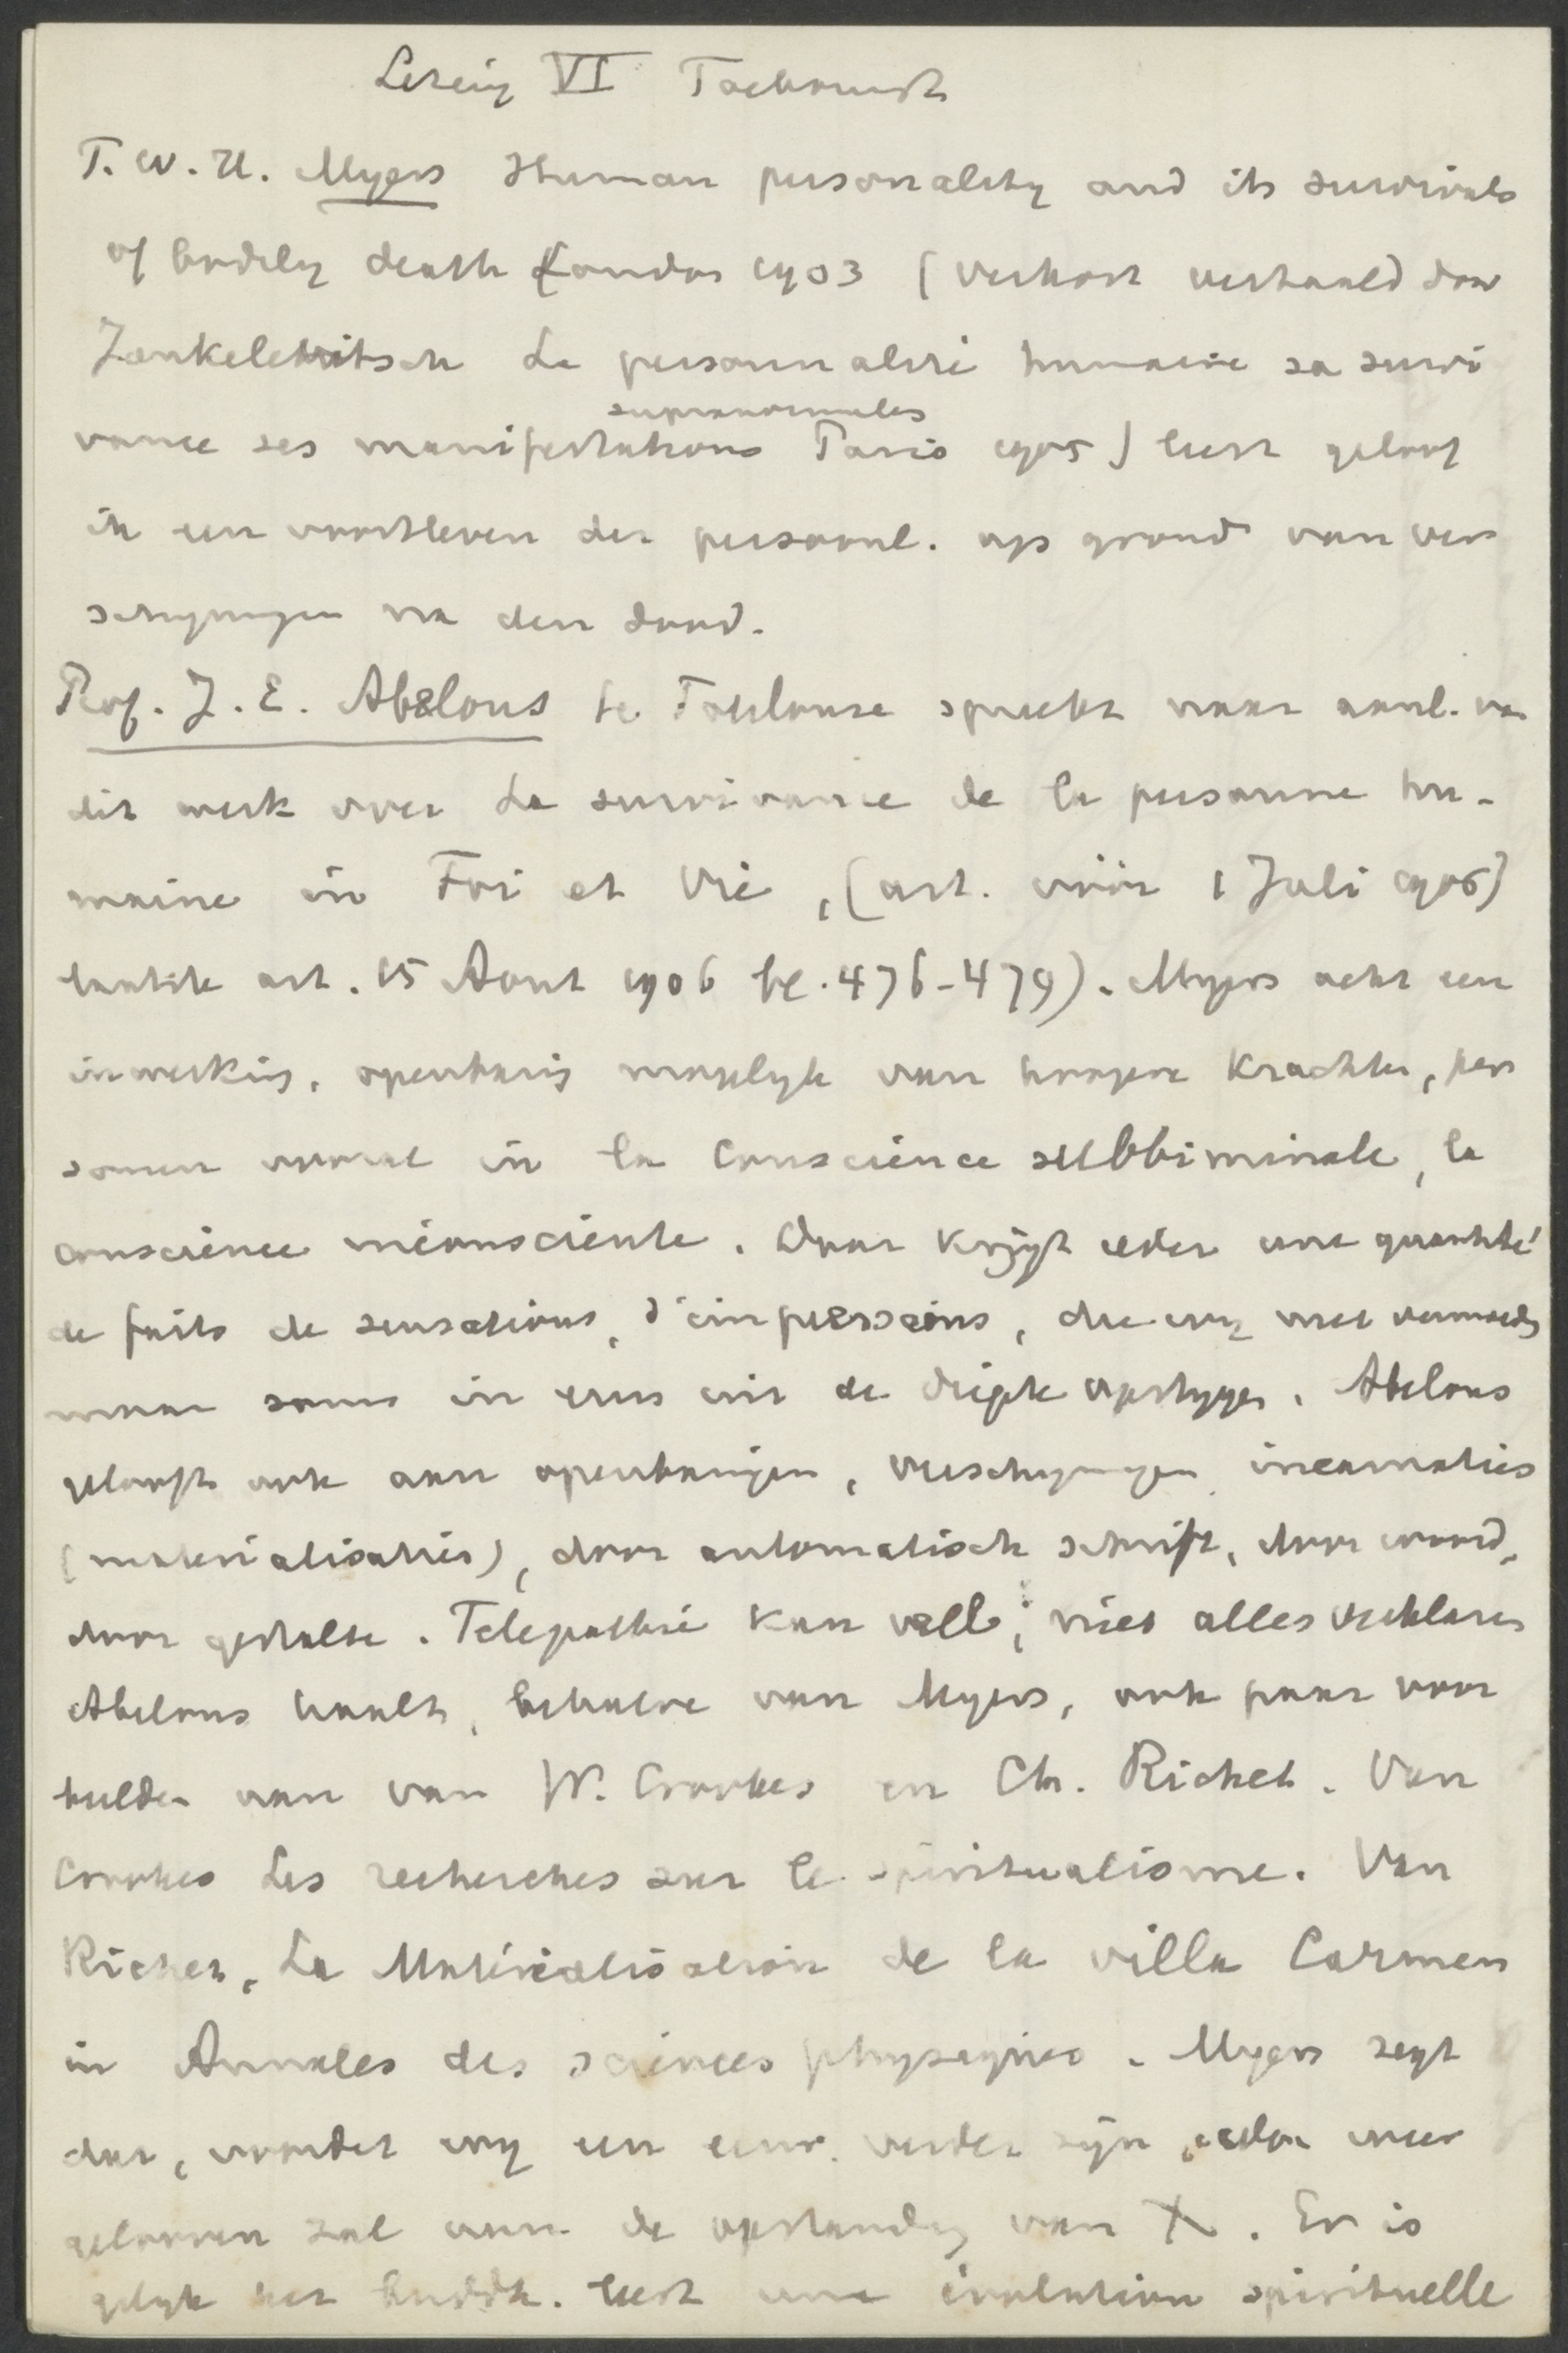 Lezing VI Toekomst
F. W. H. Myers Human personality and its survival
of bodily death London 1903 (verkort vertaald door
Jankelevitsch La personnalité humaine sa survi
supranormales
vance ses manifestations Paris 1905) leert geloof
in een voortleven der persoonl. op grond van ver
schijningen na den dood.
Prof. J. E. Abelous te Toulouse spreekt naar aanl. van
dit werk over La survivance de la personne hu-
maine in Foi et Vie, (art. vóór 1 Juli 1906)
laatste art. 15 Aout 1906 bl. 476-479). Myers acht een
inwerking, openbaring mogelijk van hoogere krachten, per
sonen vooral in la conscience subliminale, la
conscience inconsciente. Daar krijgt ieder une quantité
de faits de sensations, d'impressions, die wij niet vermoeden
maar soms in eens uit de diepte opstijgen. Abelous
gelooft ook aan openbaringen, verschijningen, incarnaties
(materialisaties), door automatisch schrift, door woord,
door gestalte. Telepathie kan veel, niet alles verklaren
Abelous haalt, behalve van Myers, ook paar voor
beelden aan van W. Crookes en Ch. Richet. Van
Crookes Les recherches sur le spiritualisme. Van
Richet, La Matérialisation de la villa Carmen
in Annales des sciences physiques. Myers zegt
dat, voordat wij een eeuw verder zijn, ieder weer
gelooven zal aan de opstanding van X. Er is
gelijk het buddh. leert une évolution spirituelle